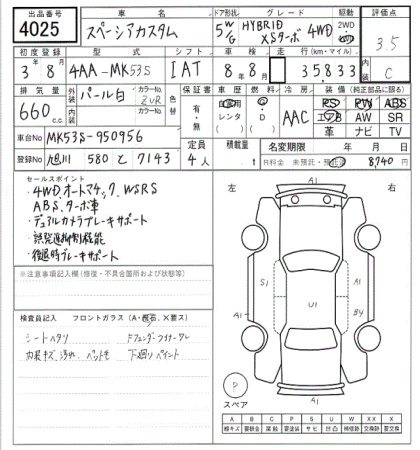 出品番号 車名 ドア形状 グレード 駆動 評価点
4025 スペーシアカスタム 5W/G HYBRID XSターボ 4WD 2WD 3.5
初度登録 型式 シフト 車検 走行(km・マイル) 内装
3年8月 4AA-MK53S IAT 8年8月 35833 C
排気量 外装 パール白 カラーNo ZVR 色替 保証書 車歴 燃料 冷房 装備(純正部品に限る)
660 c.c. 内装 カラーNo 有・無 自家用 レンタ G・D AAC PS PW ABS
エアB AW SR
革 ナビ TV
車台No MK53S-950956 定員 積載量 名変期限 年 月 日
登録No 旭川 580 と 7143 4人 t R料金 未預託・預託済 8,940円
セールスポイント
・4WDオートマチック、WSRS
ABS、ターボ車
・デュアルカメラブレーキサポート
・誤発進抑制機能
・後退時ブレーキサポート
※注意事項記入欄(修復・不具合箇所および状態等)
検査員記入 フロントガラス(A・飛石、X要ス)
シートヘタリ Fフェンダーライナーワレ
内装キズ、汚れ、ペットモ 下廻りペイント
左 右
A1
S1 U1 A1
A1 B4
A1
P
スペア
A B C P S U W X XX
線キズ 要鈑金 腐蝕 要塗装 サビ 凹凸 補修跡 要交換 交換済